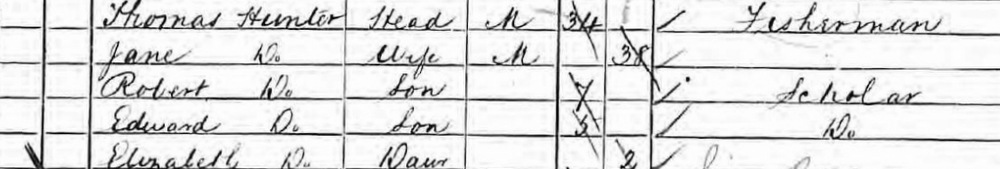 Thomas Hunter Head M 34 Fisherman
Jane Do. Wife M 38
Robert Do. Son 7 Scholar
Edward Do. Son 5 Do.
Elizabeth Do. Daur 2